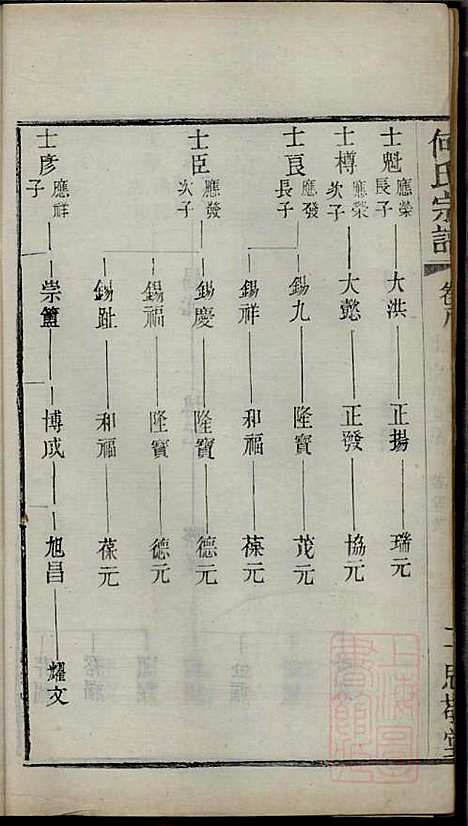 何氏宗譜
士魁 應榮長子 大洪 正揚 瑞元
士樽 應榮次子 大懿 正發 協元
士良 應發長子 錫九 隆寶 茂元
錫祥 和福 葆元
士臣 應發次子 錫慶 隆寶 德元
錫福 隆寶 德元
錫趾 和福 葆元
士彥 應祥子 崇簠 博成 旭昌 耀文
上海圖書館藏